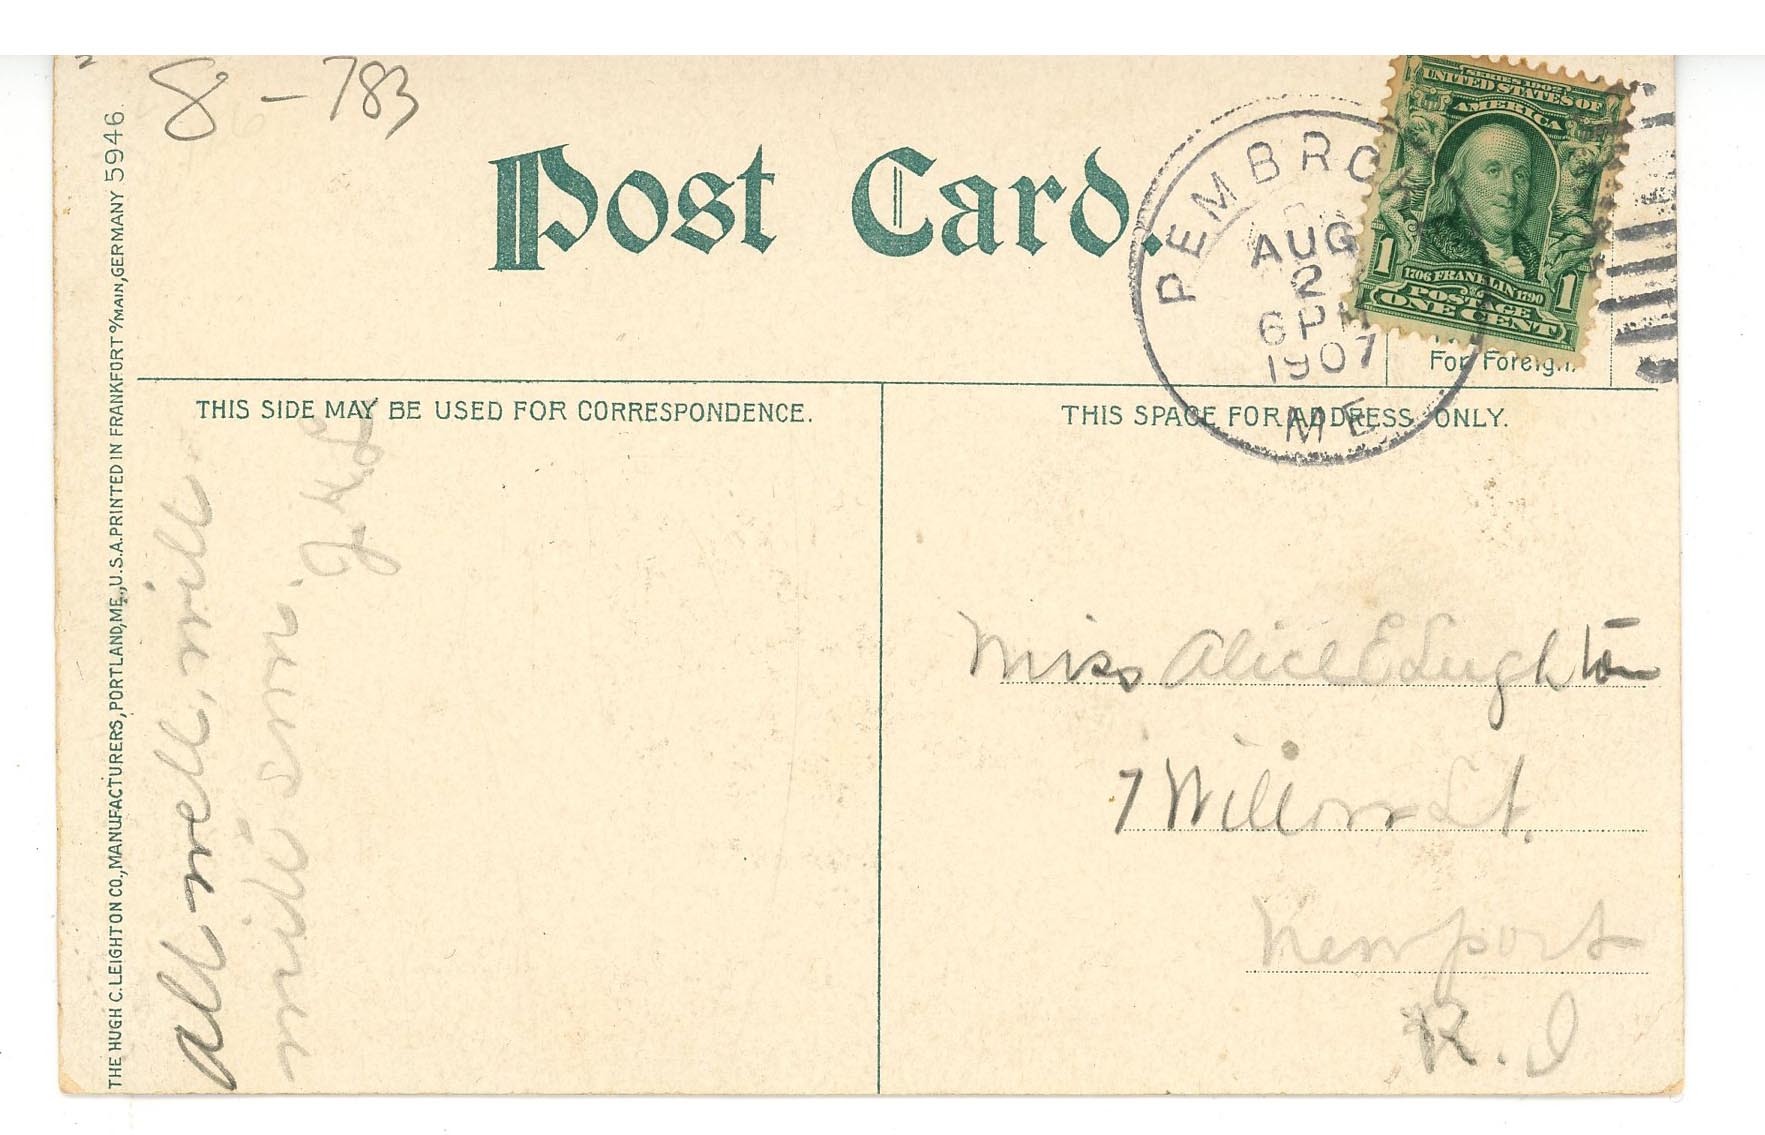 8 - 783
Post Card.
SERIES 1902
UNITED STATES OF
AMERICA
1 1706 FRANKLIN 1790 1
POSTAGE
ONE CENT
PEMBROKE
AUG
2
6 PM
1907
ME
For Foreign.
THIS SIDE MAY BE USED FOR CORRESPONDENCE.
THIS SPACE FOR ADDRESS ONLY.
THE HUGH C. LEIGHTON CO., MANUFACTURERS, PORTLAND, ME., U.S.A. PRINTED IN FRANKFORT o/MAIN, GERMANY 5946.
all well, will
write soon.
Miss Alice E Leighton
7 Willow St.
Newport
R. I